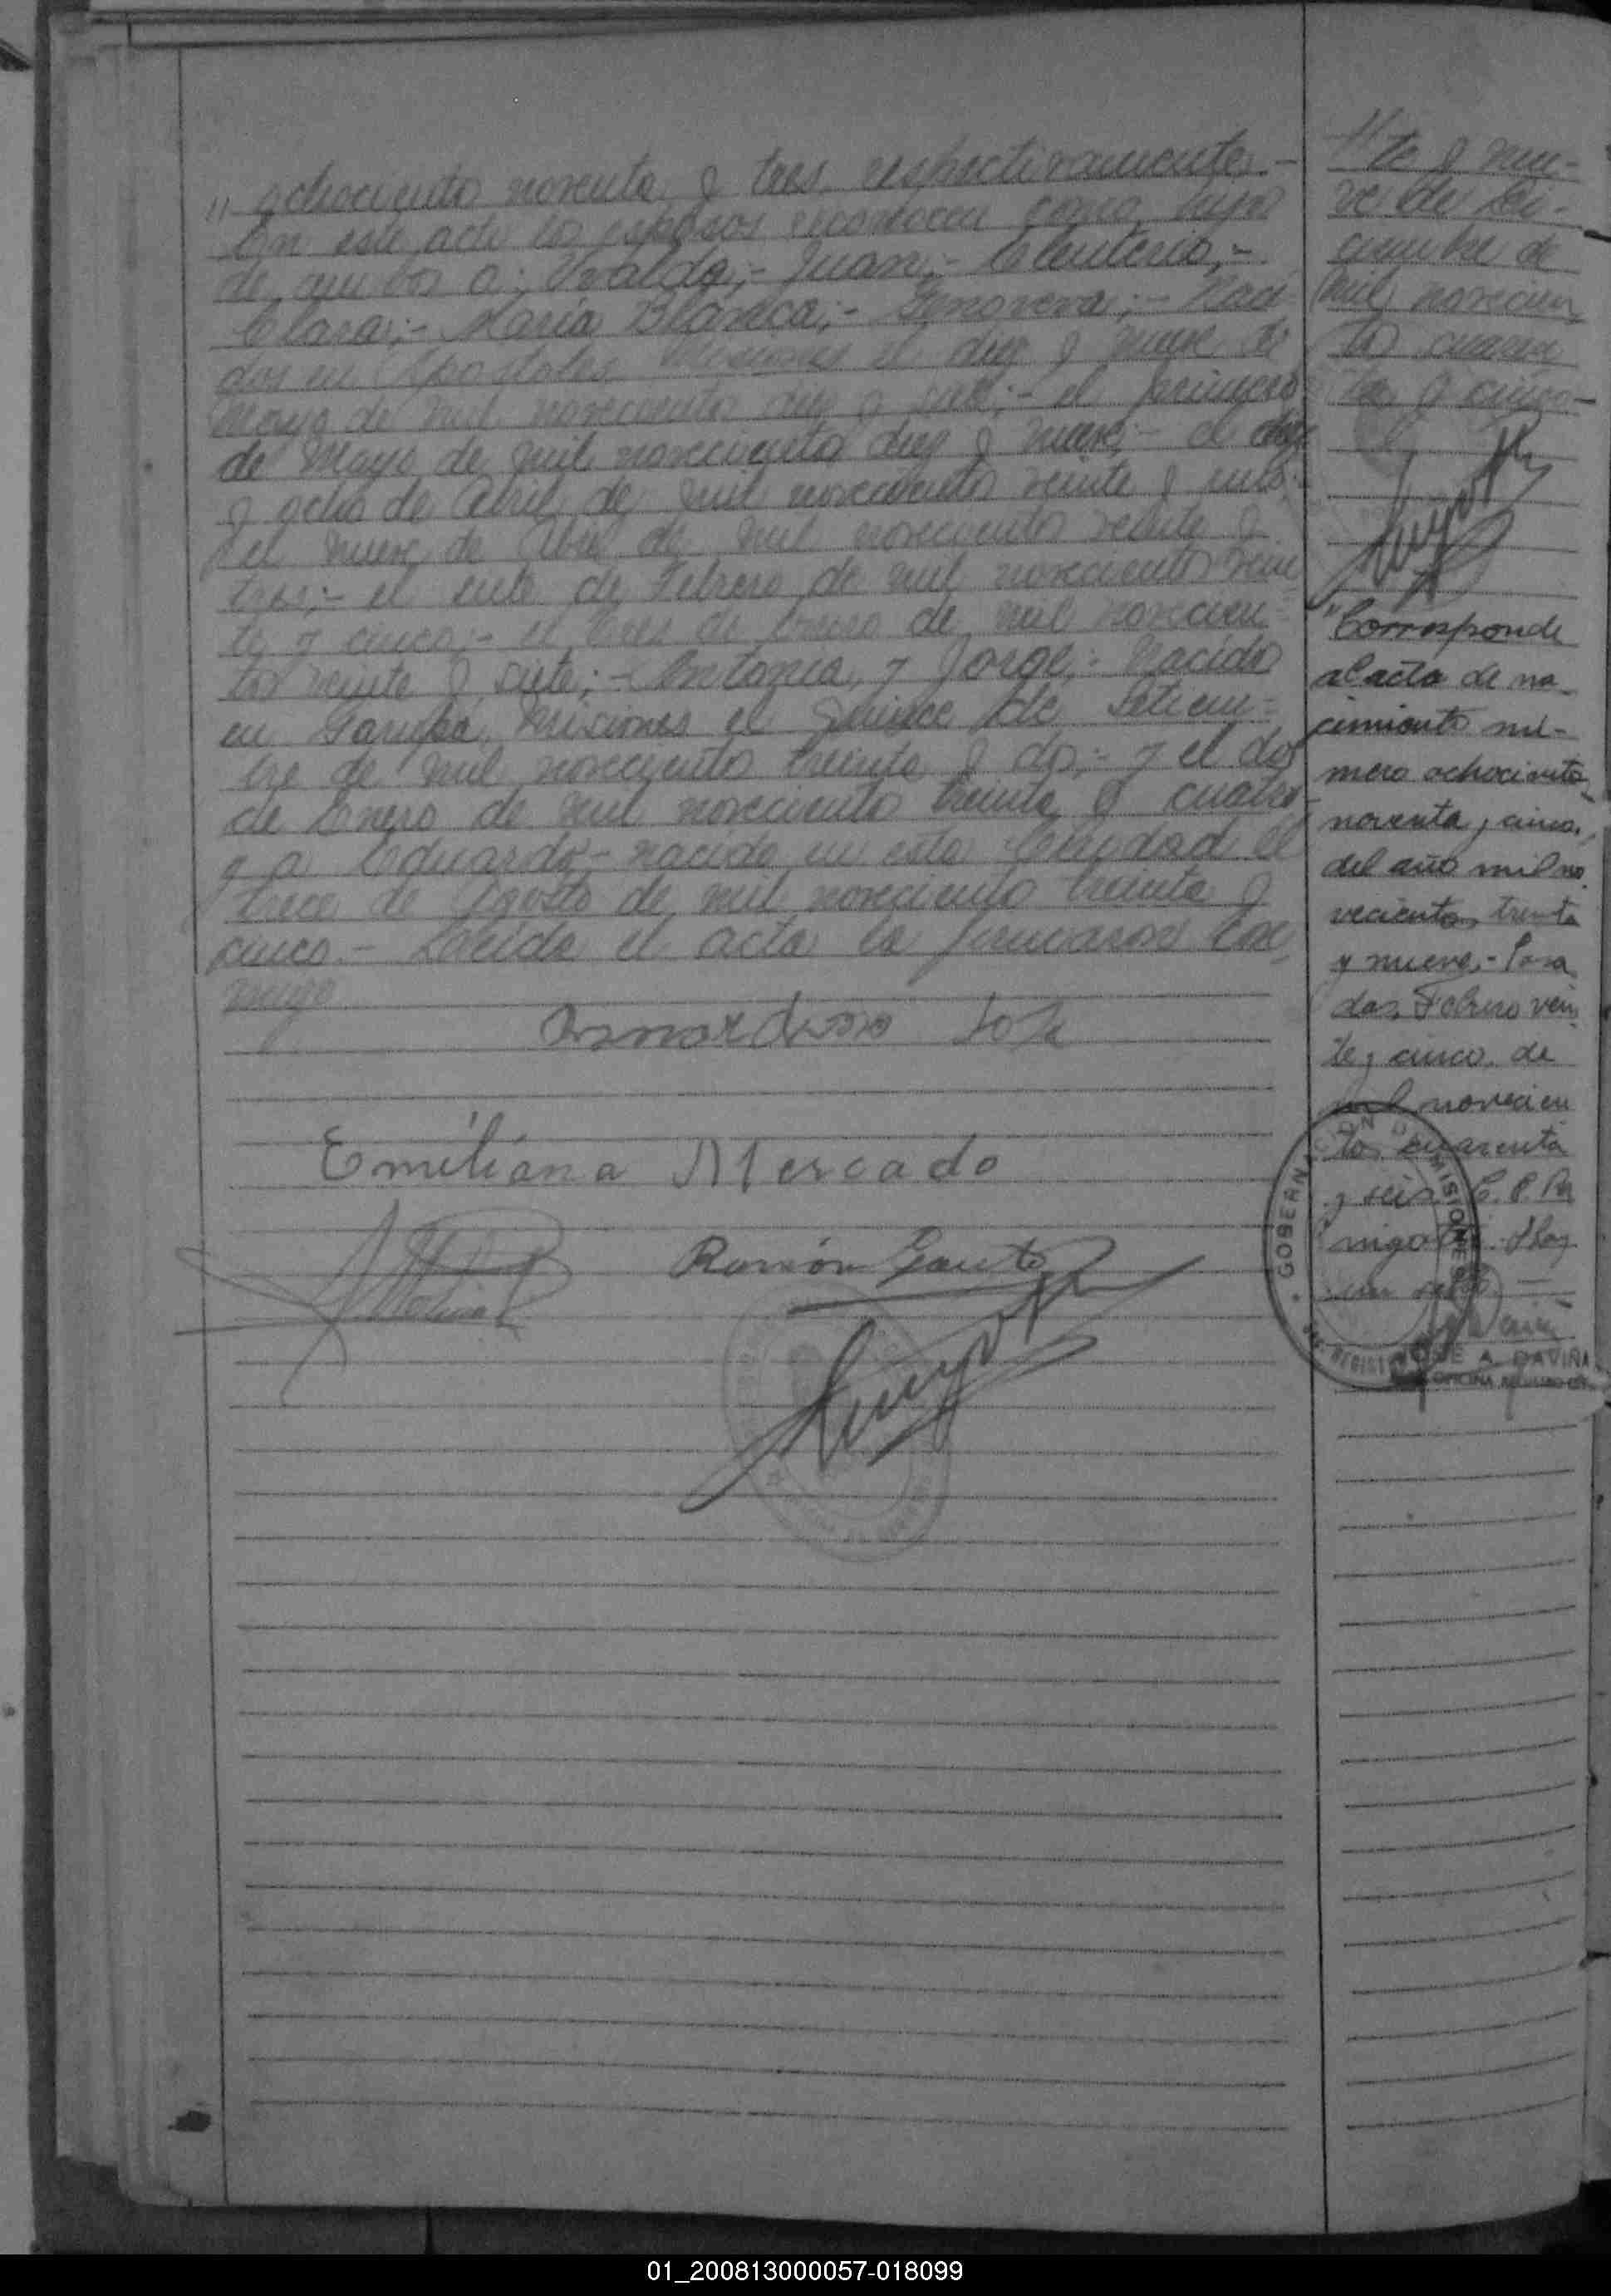 " ochocientos noventa y tres respectivamente.-
En este acto los esposos reconocen como hijos
de ambos a: Uvaldo;- Juan;- Eleuterio;-
Clara;- María Blanca;- Genoveva;- Naci-
dos en Apóstoles Misiones el diez y nueve de
Mayo de mil novecientos diez y siete;- el primero
de Mayo de mil novecientos diez y nueve;- el diez
y ocho de Abril de mil novecientos veinte y uno-
el nueve de Abril de mil novecientos veinte y
tres;- el siete de Febrero de mil novecientos vein
te y cinco;- el tres de Enero de mil novecien-
tos veinte y siete;- Antonia, y Jorge;- Nacidos
en Garupá, Misiones el quince de Setiem-
bre de mil novecientos treinta y dos;- y el dos
de Enero de mil novecientos treinta y cuatro-
y a Eduardo- nacido en esta Ciudad el
trece de Agosto de mil novecientos treinta y
cinco.- Leída el acta la firmaron con-
migo
Bernardino Sosa
Emiliana Mercado
Molina
Ramón Gauto
"te y nue-
ve de Di-
ciembre de
mil novecien
tos cuaren
ta y cinco-
"Corresponde
al acta de na-
cimiento nú-
mero ochocientos
noventa y cinco,
del año mil no
vecientos treinta
y nueve.- Posa
das, Febrero vein
te y cinco de
mil novecien
tos cuarenta
y seis
Hay
un sello.-
GOBERNACION DE MISIONES
REGISTRO
JOSE A. DAVIÑA
OFICINA REGISTRO CIVIL
01_200813000057-018099